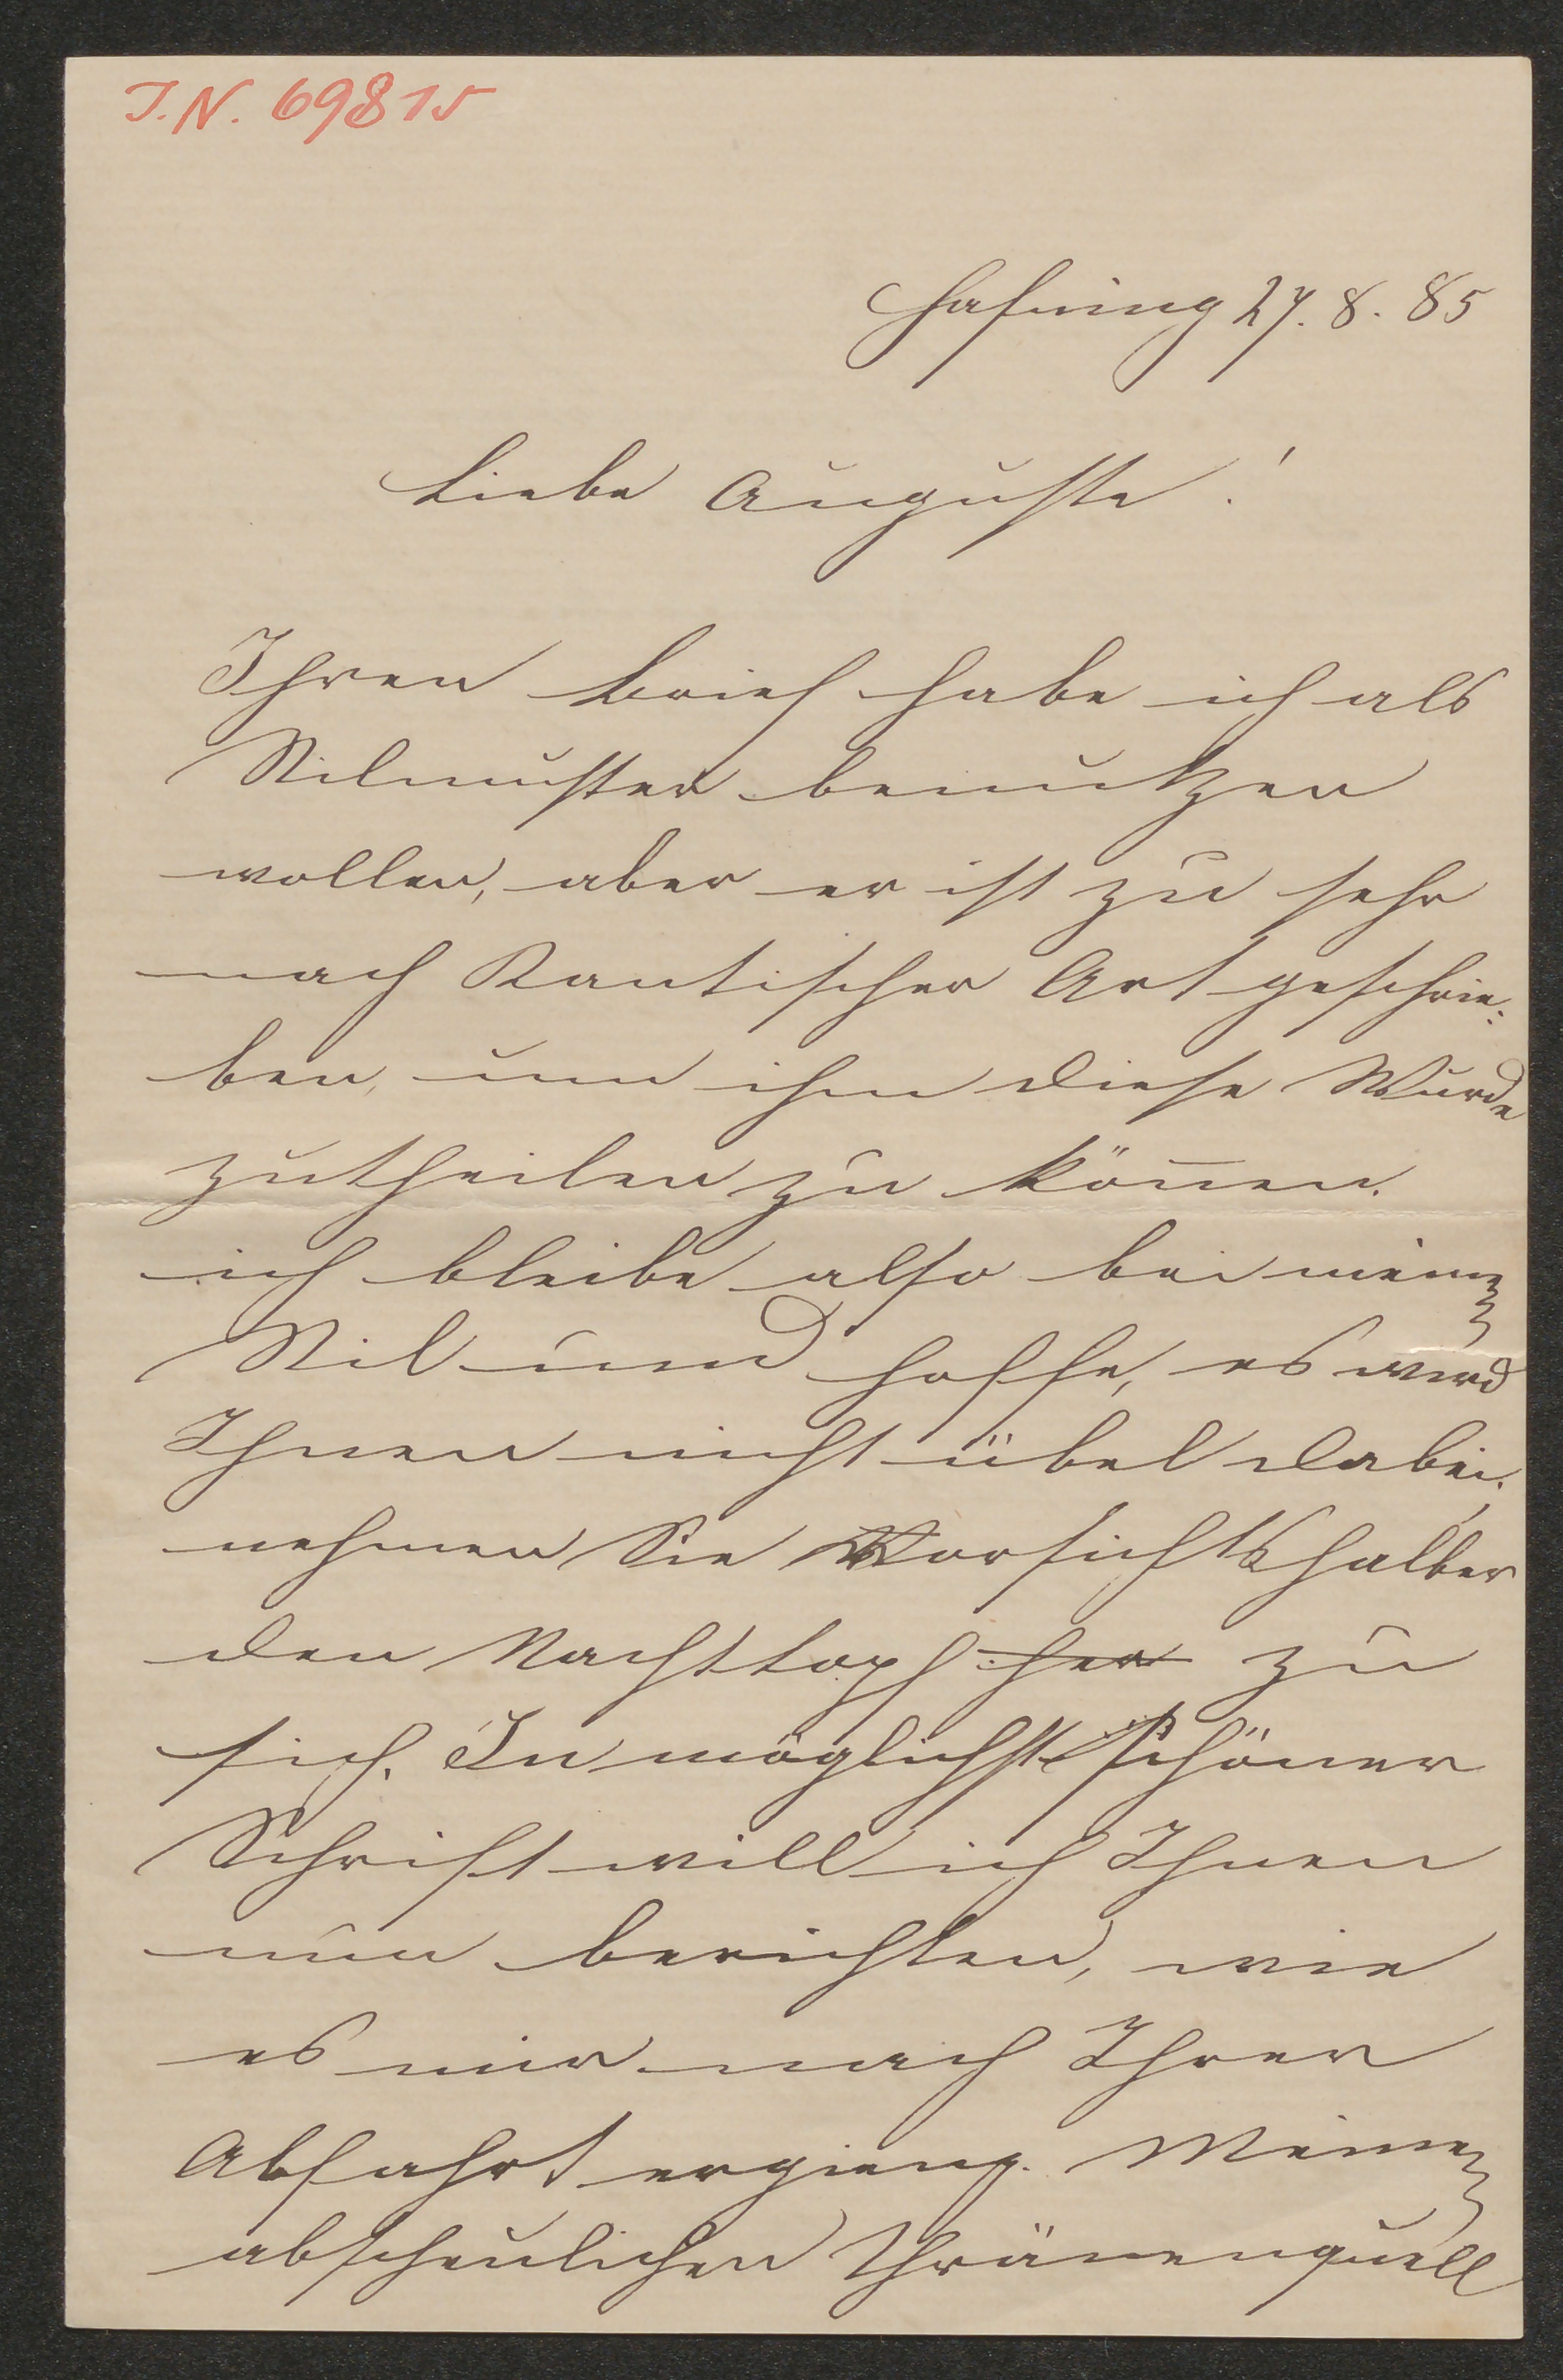 I.N. 69815
Hafning 27. 8. 85
Liebe Auguste!
Ihren Brief habe ich als
Stilmuster benutzen
wollen, aber er ist zu sehr
nach Kantischer Art geschrie-
ben, um ihm diese Würde
zutheilen zu können.
ich bleibe also bei meinem
Stil und hoffe, es wird
Ihnen nicht übel dabei.
nehmen Sie Vorsichtshalber
den Nachttopf her zu
sich. In möglichst schöner
Schrift will ich Ihnen
nun berichten, wie
es mir nach Ihrer
Abfahrt ergieng. Meinen
abscheulichen Thränenquell